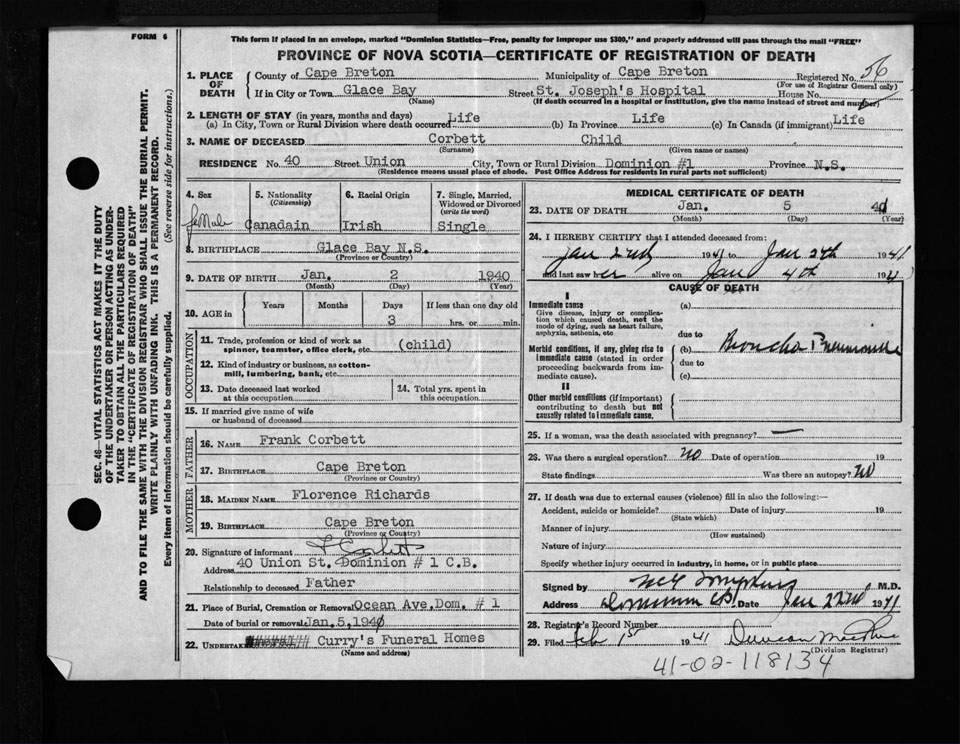 FORM 6
This form if placed in an envelope, marked "Dominion Statistics—Free, penalty for improper use $300," and properly addressed will pass through the mail "FREE"
PROVINCE OF NOVA SCOTIA—CERTIFICATE OF REGISTRATION OF DEATH
SEC. 46—VITAL STATISTICS ACT MAKES IT THE DUTY
OF THE UNDERTAKER OR PERSON ACTING AS UNDER-
TAKER TO OBTAIN ALL THE PARTICULARS REQUIRED
IN THE "CERTIFICATE OF REGISTRATION OF DEATH"
AND TO FILE THE SAME WITH THE DIVISION REGISTRAR WHO SHALL ISSUE THE BURIAL PERMIT.
WRITE PLAINLY WITH UNFADING INK. THIS IS A PERMANENT RECORD.
Every item of information should be carefully supplied. (See reverse side for instructions.)
1. PLACE OF DEATH
County of Cape Breton Municipality of Cape Breton Registered No. 56
(For use of Registrar General only)
If in City or Town Glace Bay Street St. Joseph's Hospital House No.
(Name) (If death occurred in a hospital or institution, give the name instead of street and number)
2. LENGTH OF STAY (in years, months and days)
(a) In City, Town or Rural Division where death occurred Life (b) In Province Life (c) In Canada (if immigrant) Life
3. NAME OF DECEASED Corbett Child
(Surname) (Given name or names)
RESIDENCE No. 40 Street Union City, Town or Rural Division Dominion #1 Province N.S.
(Residence means usual place of abode. Post Office Address for residents in rural parts not sufficient)
4. Sex 5. Nationality 6. Racial Origin 7. Single, Married,
(Citizenship) Widowed or Divorced
(write the word)
feMale Canadain Irish Single
8. BIRTHPLACE Glace Bay N.S.
(Province or Country)
9. DATE OF BIRTH Jan. 2 1940
(Month) (Day) (Year)
10. AGE in Years Months Days If less than one day old
3 hrs. or min.
OCCUPATION
11. Trade, profession or kind of work as
spinner, teamster, office clerk, etc. (child)
12. Kind of industry or business, as cotton-
mill, lumbering, bank, etc.
13. Date deceased last worked
at this occupation
14. Total yrs. spent in
this occupation
15. If married give name of wife
or husband of deceased
FATHER
16. NAME Frank Corbett
17. BIRTHPLACE Cape Breton
(Province or Country)
MOTHER
18. MAIDEN NAME Florence Richards
19. BIRTHPLACE Cape Breton
(Province or Country)
20. Signature of informant F Corbett
Address 40 Union St. Dominion # 1 C.B.
Relationship to deceased Father
21. Place of Burial, Cremation or Removal Ocean Ave, Dom. # 1
Date of burial or removal Jan. 5, 194
22. UNDERTAKER Curry's Funeral Homes
(Name and address)
MEDICAL CERTIFICATE OF DEATH
23. DATE OF DEATH Jan. 5 41
(Month) (Day) (Year)
24. I HEREBY CERTIFY that I attended deceased from:
Jan 2nd 1941 to Jan 1941
and last saw her alive on Jan 4th 1941
CAUSE OF DEATH
I
Immediate cause (a)
Give disease, injury or complica-
tion which caused death, not the
mode of dying, such as heart failure,
asphyxia, asthenia, etc
due to
Morbid conditions, if any, giving rise to
immediate cause (stated in order
proceeding backwards from im-
mediate cause).
(b) Broncho Pneumonia
due to
(c)
II
Other morbid conditions (if important)
contributing to death but not
causally related to immediate cause.
25. If a woman, was the death associated with pregnancy? —
26. Was there a surgical operation? No Date of operation 19
State findings Was there an autopsy? No
27. If death was due to external causes (violence) fill in also the following:—
Accident, suicide or homicide? Date of injury 19
(State which)
Manner of injury
(How sustained)
Nature of injury
Specify whether injury occurred in industry, in home, or in public place
Signed by Tompkins M.D.
Address Dominion C.B. Date Jan 22nd 1941
28. Registrar's Record Number
29. Filed Feb 1st 1941 Duncan
(Division Registrar)
41-02-118134